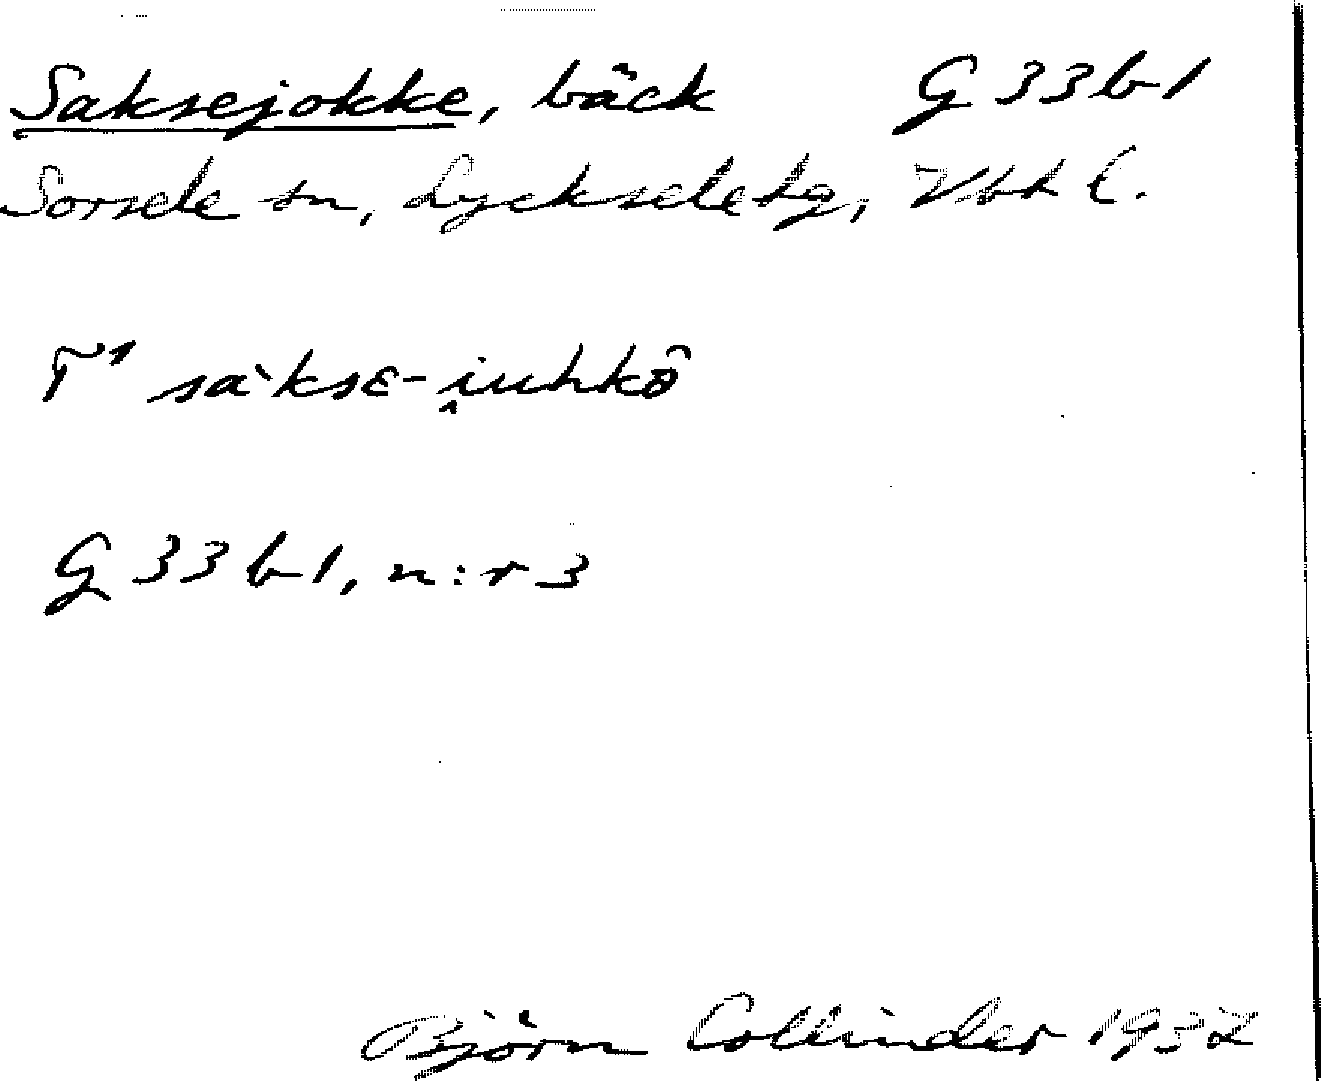 Saksejokke, bäck G 33 b 1
Sorsele sn, Lycksele lg, Vbt l.
T¹ sàkse-i̭uhkô
G 33 b 1, n:r 3
Björn Collinder 1932